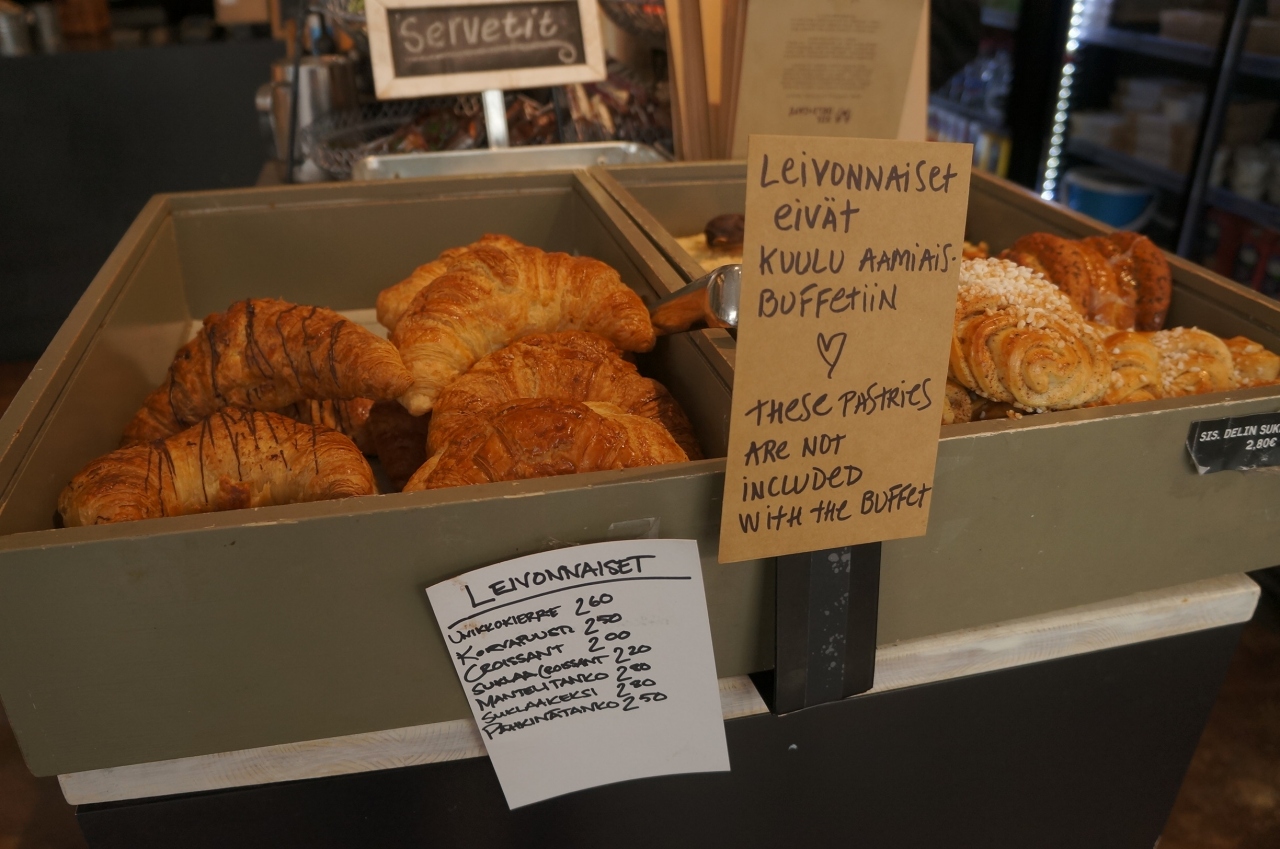 Servetit
LEIVONNAISET
EIVÄT
KUULU AAMIAIS-
BUFFETIIN
♡
THESE PASTRIES
ARE NOT
INCLUDED
WITH THE BUFFET
SIS. DELIN SUK
2,80€
LEIVONNAISET
UNIKKOKIERRE 2 60
KORVAPUUSTI 2 50
CROISSANT 2 00
SUKLAACROISSANT 2 20
MANTELITANKO 2 80
SUKLAAKEKSI 2 80
PÄHKINÄTANKO 2 50